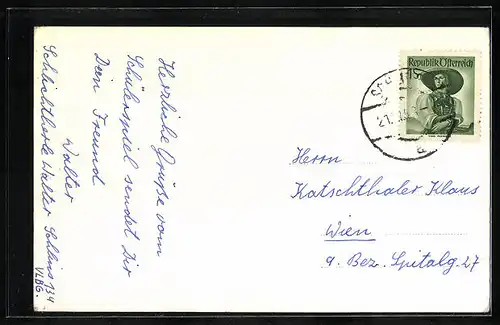 Herzliche Grüße vom
Schülerspiel sendet Dir
Dein Freund
Walter
Schlachtherle Walter Schlins 134
VLBG.
Republik Österreich
Herrn
Katschthaler Klaus
Wien
9. Bez. Spitalg. 27